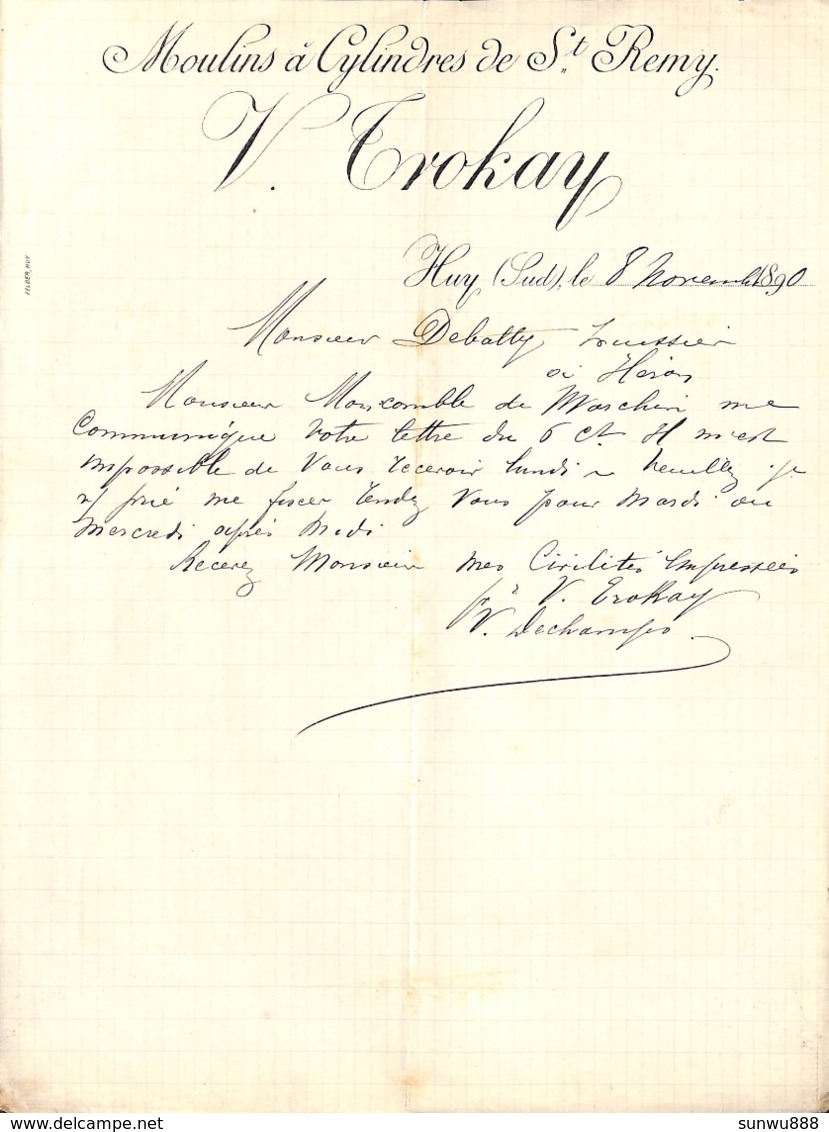 Moulins à Cylindres de St. Remy.
V. Trokay
Huy (Sud), le 8 Novembre 1890
FELDER, HUY
Monsieur Debatty huissier
à Héron
Monsieur Moncomble de me
Communique votre lettre du 6 ct. Il m'est
impossible de Vous recevoir lundi veuillez je
prie me fixer rendez Vous pour Mardi ou
Mercredi après Midi
Recevez Monsieur mes Civilités Empressées
pr V. Trokay
V. Dechamps
delcampe.net
sunwu888